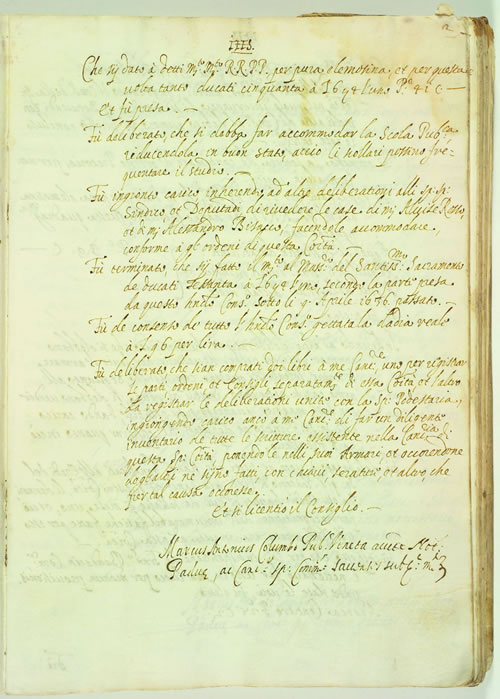 2
1715.
Che sij dato à detti m.to R.R.P.P. per pura elemosina, et per questa
volta tanto ducati cinquanta à
Et fù presa. —
Fù deliberato, che si debba far accommodar la Scola Pub.ca
riducendola in buon stato, acciò li scollari possino fre-
quentare il studio. —
Fù ingionto carico inherendo ad altre deliberationi alli Sp: Sp:
Sindico et Deputadi di rivedere le case di m: Aluise
et di m: Alessandro facendole accommodare,
conforme à gl'ordeni di questa Co.tà
Fù terminato, che sij fatto il m.to al Mass.o del Santiss.mo Sacramento
de ducati settanta à secondo la parte presa
da questo Cons.o sotto li 9 Aprile 1676 passato. —
Fù de consenso de tutto l' Cons.o gettata la reale
à per lira. —
Fù deliberato che sian comprati doi libri à me Can.re uno per registrar
le parti ordeni et Consegli separatam.te di essa Co.tà et l'altro
da registrar le deliberationi unite con la Sp: Podestaria,
ingiongendo carico anco à me Can.re di far un diligente
inventario de tutte le scritture essistente nella Can.ria di
questa Sp: Co.tà ponendole nelli suoi Armari et occorendone
aggiustar ne sijno fatti con chiavi serature, et altro, che
per tal causa occoresse,
Et si licentiò il Consiglio. —
Marcus Antonius Columbo Pub.s Veneta aucte Not.s
Paduæ, ac Can.s Sp: Comm.s